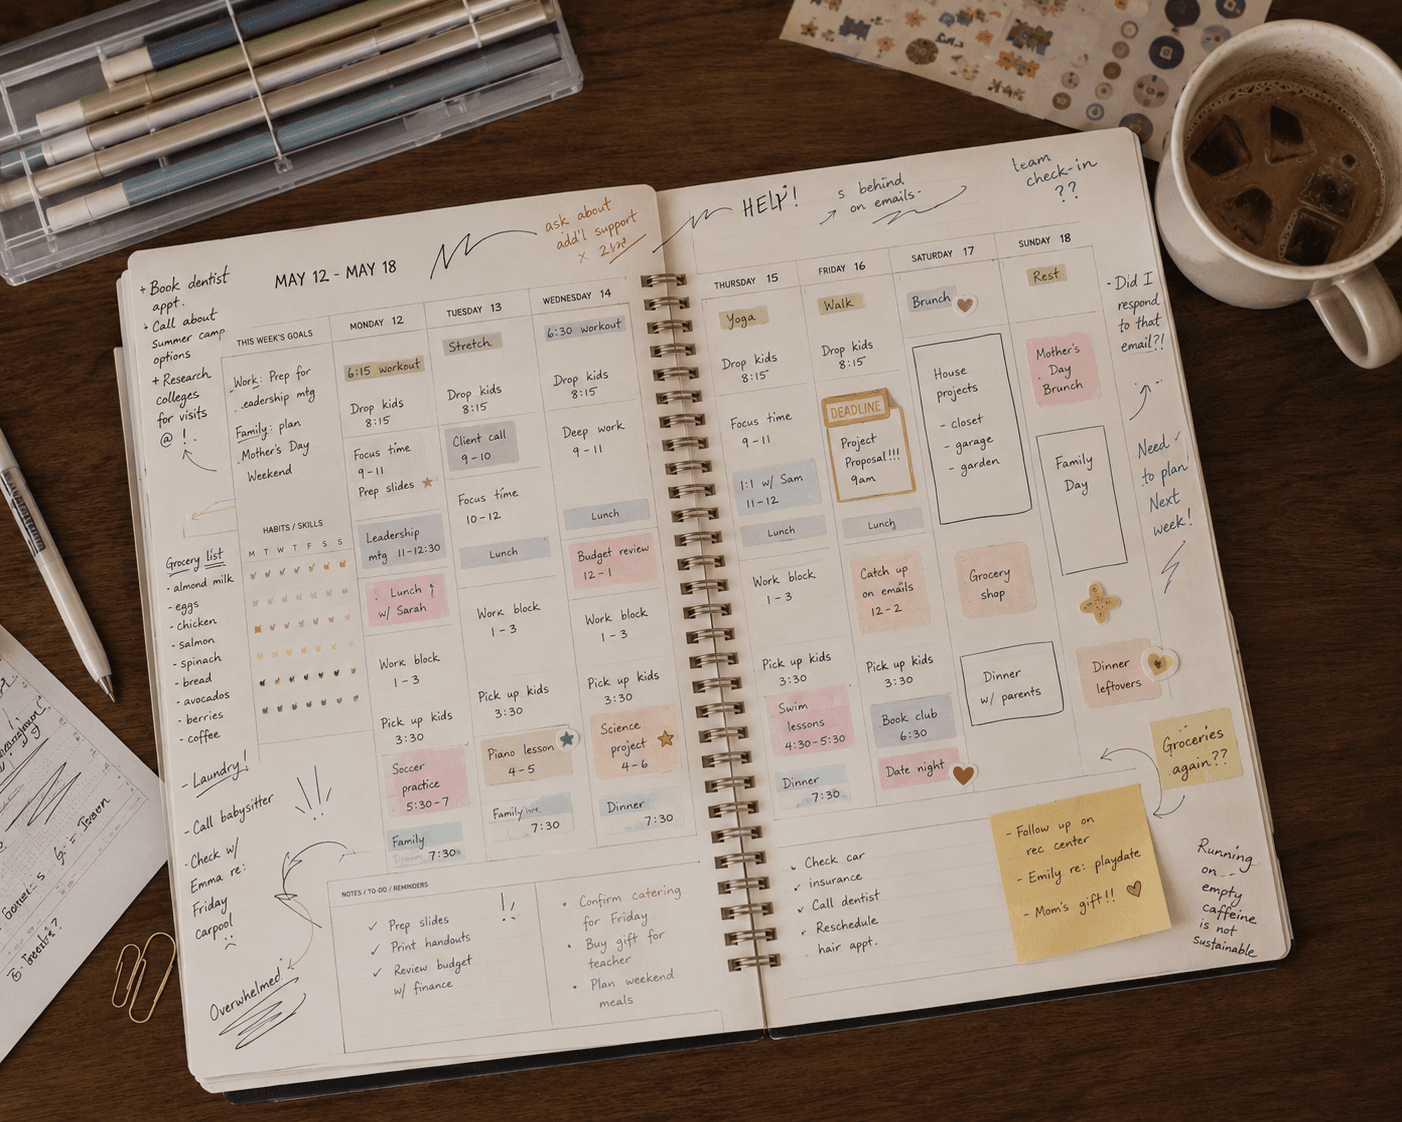 ask about
add'l support
HELP!
s behind
on emails
team
check-in
??
+ Book dentist
appt.
+ Call about
summer camp
options
+ Research
colleges
for visits
@ !
MAY 12 - MAY 18
THIS WEEK'S GOALS
Work: Prep for
leadership mtg
Family: plan
Mother's Day
Weekend
HABITS / SKILLS
M T W T F S S
Grocery list
- almond milk
- eggs
- chicken
- salmon
- spinach
- bread
- avocados
- berries
- coffee
- Laundry!
- Call babysitter
- Check w/
Emma re:
Friday
carpool
Overwhelmed
MONDAY 12
6:15 workout
Drop kids
8:15
Focus time
9-11
Prep slides
Leadership
mtg 11-12:30
Lunch
w/ Sarah
Work block
1-3
Pick up kids
3:30
Soccer
practice
5:30-7
Family
7:30
TUESDAY 13
Stretch
Drop kids
8:15
Client call
9-10
Focus time
10-12
Lunch
Work block
1-3
Pick up kids
3:30
Piano lesson
4-5
Family
7:30
WEDNESDAY 14
6:30 workout
Drop kids
8:15
Deep work
9-11
Lunch
Budget review
12-1
Work block
1-3
Pick up kids
3:30
Science
project
4-6
Dinner
7:30
THURSDAY 15
Yoga
Drop kids
8:15
Focus time
9-11
1:1 w/ Sam
11-12
Lunch
Work block
1-3
Pick up kids
3:30
Swim
lessons
4:30-5:30
Dinner
7:30
FRIDAY 16
Walk
Drop kids
8:15
DEADLINE
Project
Proposal!!!
9am
Lunch
Catch up
on emails
12-2
Pick up kids
3:30
Book club
6:30
Date night
SATURDAY 17
Brunch
House
projects
- closet
- garage
- garden
Grocery
shop
Dinner
w/ parents
SUNDAY 18
Rest
Mother's
Day
Brunch
Family
Day
Dinner
leftovers
- Did I
respond
to that
email?!
Need
to plan
Next
week!
Groceries
again??
NOTES / TO-DO / REMINDERS
✓ Prep slides
✓ Print handouts
✓ Review budget
w/ finance
• Confirm catering
for Friday
• Buy gift for
teacher
• Plan weekend
meals
Check car
insurance
Call dentist
Reschedule
hair appt.
- Follow up on
rec center
- Emily re: playdate
- Mom's gift!!
Running
on
empty
caffeine
is not
sustainable